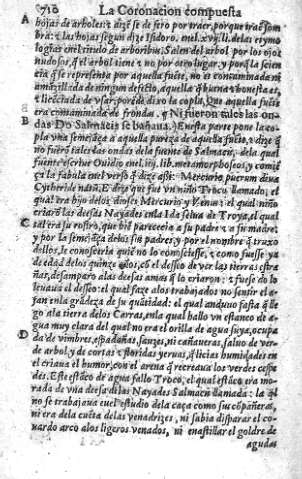 710 La Coronacion compuesta
A hojas de arboles: e dizese de fero por traer, porque trae som
bra: e las hojas segun dize Isidoro, enel.xvij. delas etymo
logias enel titulo de arboribus, Salen del arbol por los ojos
nudosos, que el arbol tiene e no por otro lugar. y porque la scien
cia que se representa por aquesta fuēte, no es contaminada ni
amanzillada de ningun defecto, aquella que buena e honesta es,
e licenciada de vsar, por esso dixo la copla, Que aquella fuēte
era contaminada de frondas. ¶ Ni fueron tales las on-
B das Do Salmacis se bañaua. ¶ Enesta parte pone la co-
pla vna semejāça a aquella pureza de aquesta fuēte, e dize que
no fuerō tales las ondas dela fuente de Salmacis, dela qual
fuente escriue Ouidio enel.iiij. lib. metamorphoseos, y comiē
ça la fabula enel verso que dize assi: Mercurio puerum diuia
Cytheride natū. E dize que fue vn niño Troco llamado, el
qual era hijo delos dioses Mercurio y Venus: el qual niño
criarō las deesas Nayades enla Ida selua de Troya, el qual
C tal era su rostro, que biē parescia a su padre e a su madre:
y por la semejāça delos sus padres, y por el nombre que truxo
dellos, le conosceria quiē no lo conosciesse, e como fuesse ya
de edad delos quinze años, cō el desseo de ver las tierras estra
ñas, desamparo alas deesas amas que lo criaron: e fuese do lo
leuaua el desseo: el qual faze alos trabajados no sentir el a-
fan enla grādeza de su quātidad: el qual anduuo fasta que lle
go ala tierra delos Carras, enla qual hallo vn estanco de a-
gua muy clara del qual no era el orilla de agua suya, ocupa
D da de vimbres, espadañas, sauzes, ni cañaueras, saluo de ver-
de arbol, y de cortas e floridas yeruas, que licias humidades en
el criaua el humor, con el arena que recreaua los verdes cespe
des. Este estāco de agua fallo Troco, el qual estāco era mo-
rada de vna deesa delas Nayades Salmacis llamada: la que
no se trabajaua enel estudio dela caça como sus cōpañeras,
ni era dela cuēta delas venadrizes, ni sabia disparar el co-
uardo arco alos ligeros venados, ni enastillar el goldre de
agudas